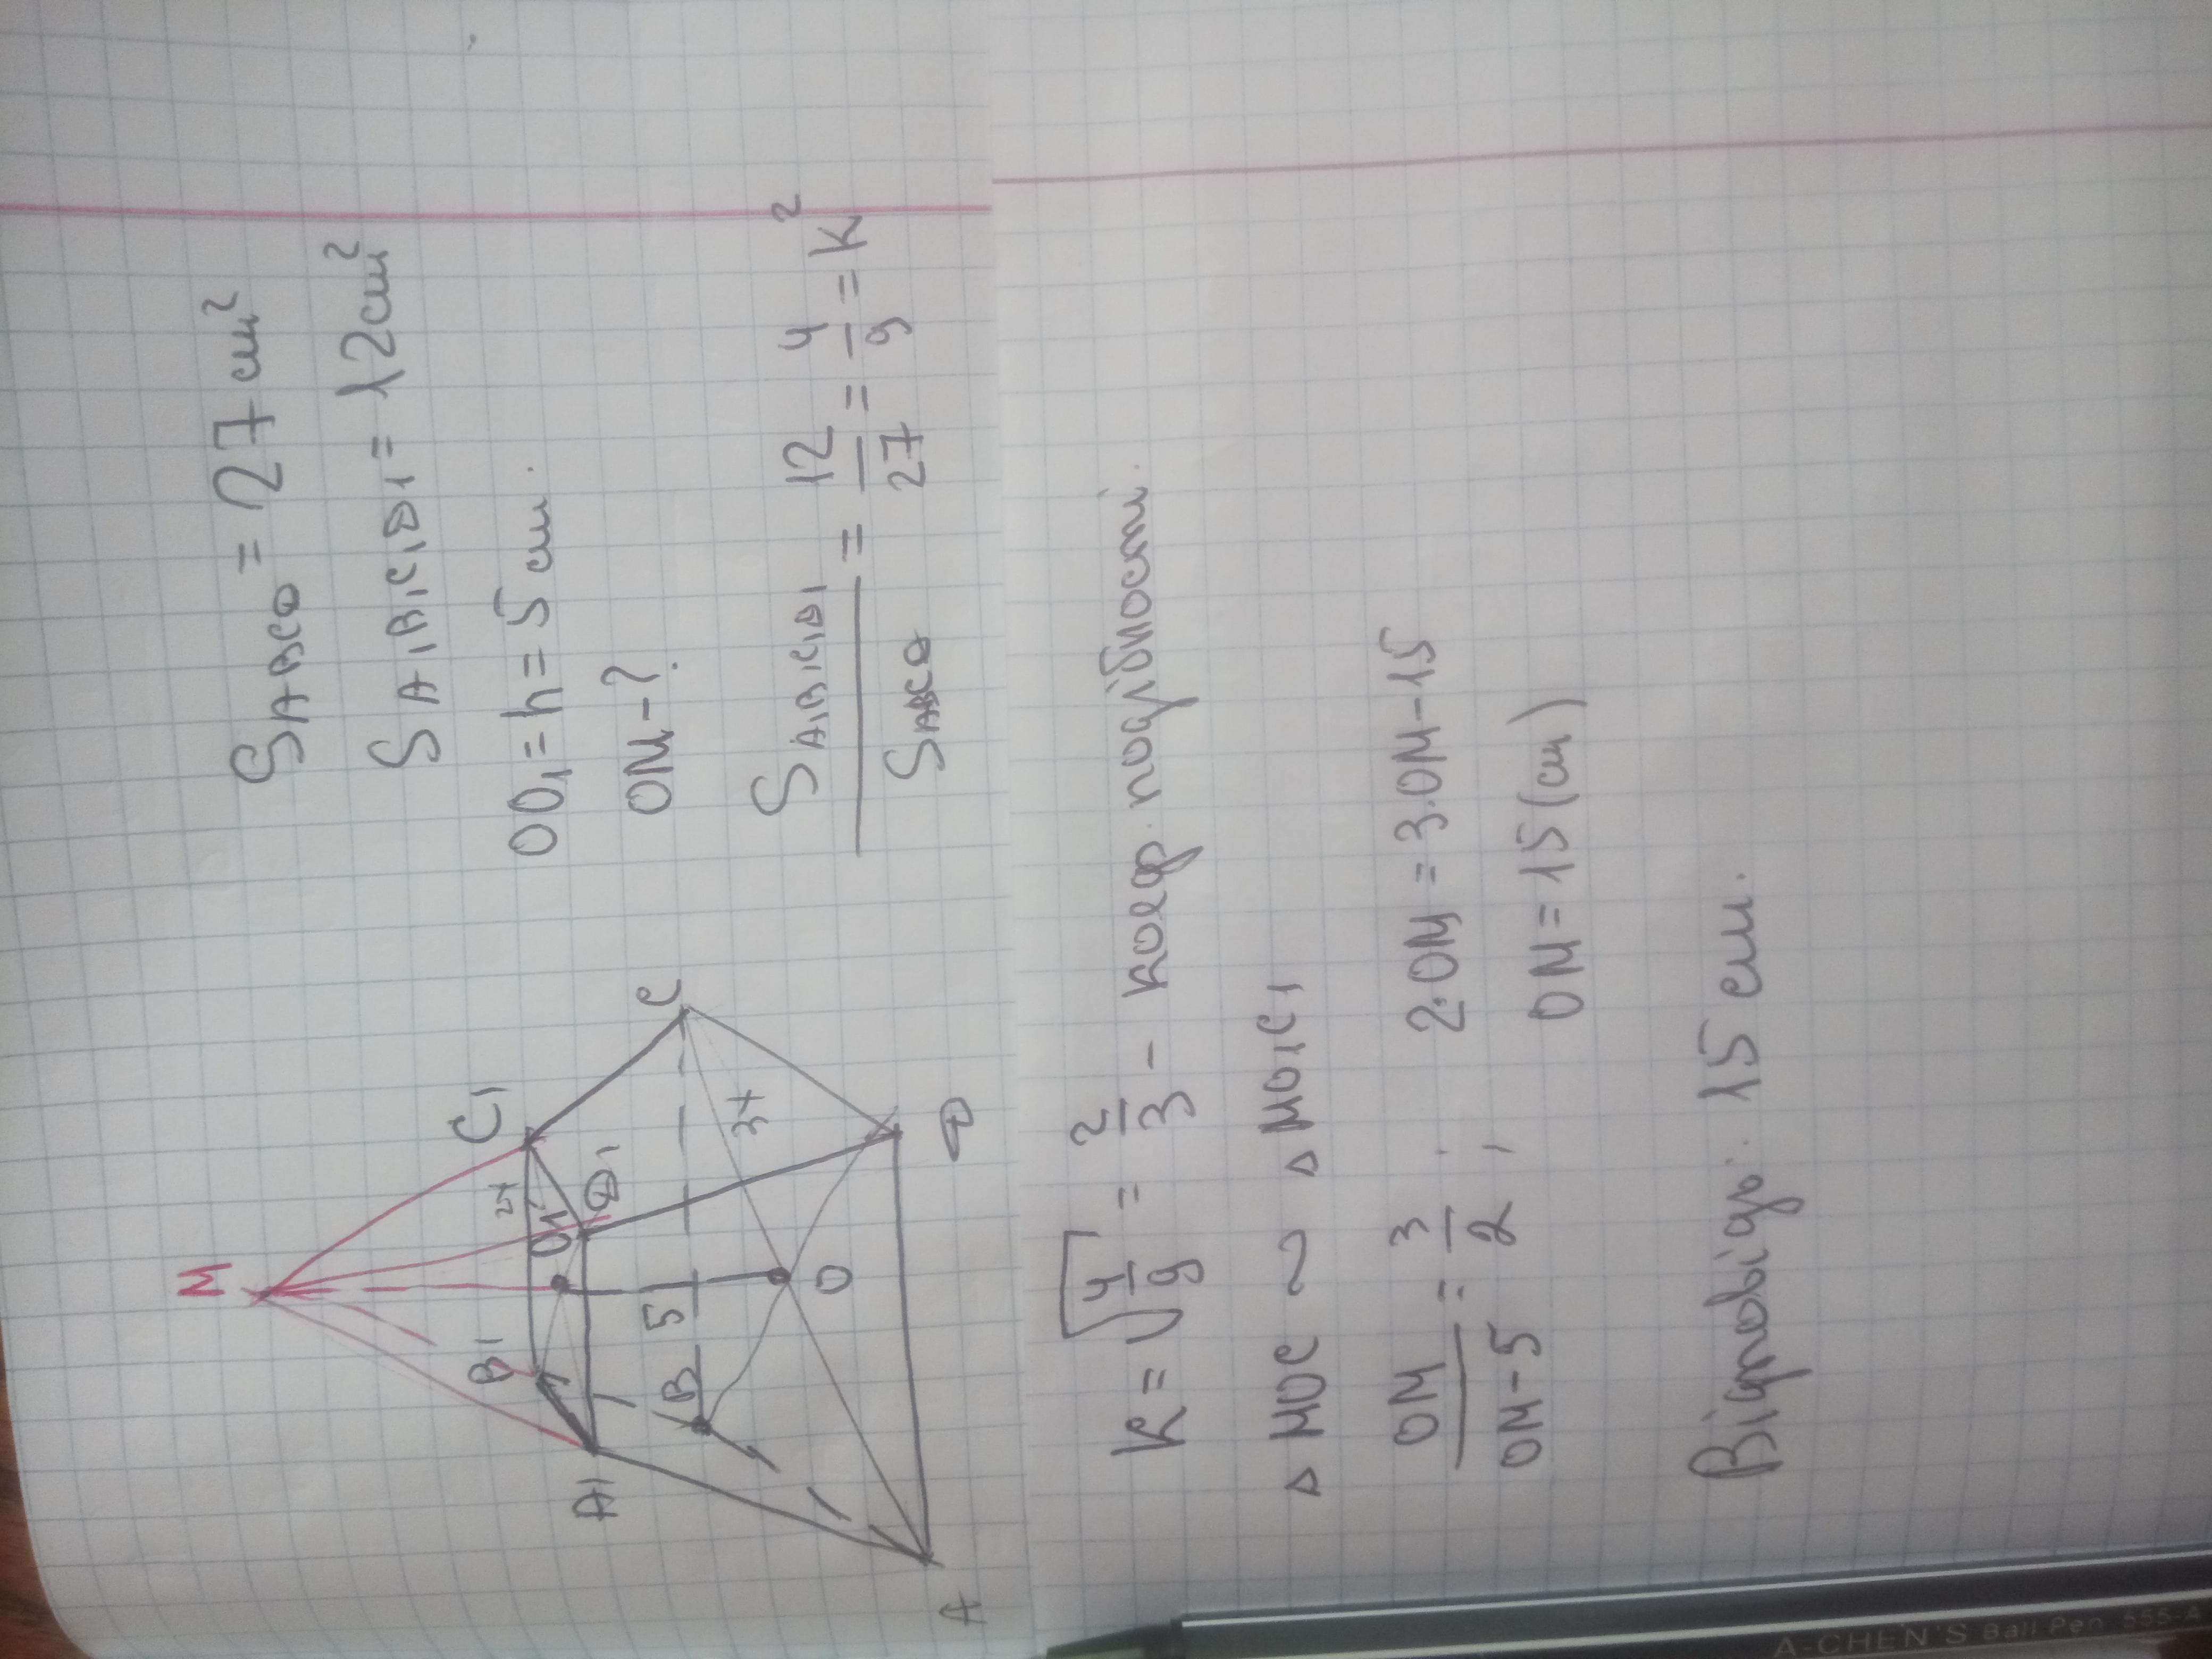 M
B1 C1
O1 2x
A1 D1
5
B C
3x
O
A D
S ABCD = 27 см²
S A1B1C1D1 = 12 см²
OO1 = h = 5 см.
OM - ?
S A1B1C1D1 / S ABCD = 12/27 = 4/9 = k²
k = √4/9 = 2/3 - коеф. подібності.
△ MOC ~ △ MO1C1
OM / OM-5 = 3/2 ; 2·OM = 3·OM-15
OM = 15 (см)
Відповідь: 15 см.
A-CHEN'S Ball Pen 555-A